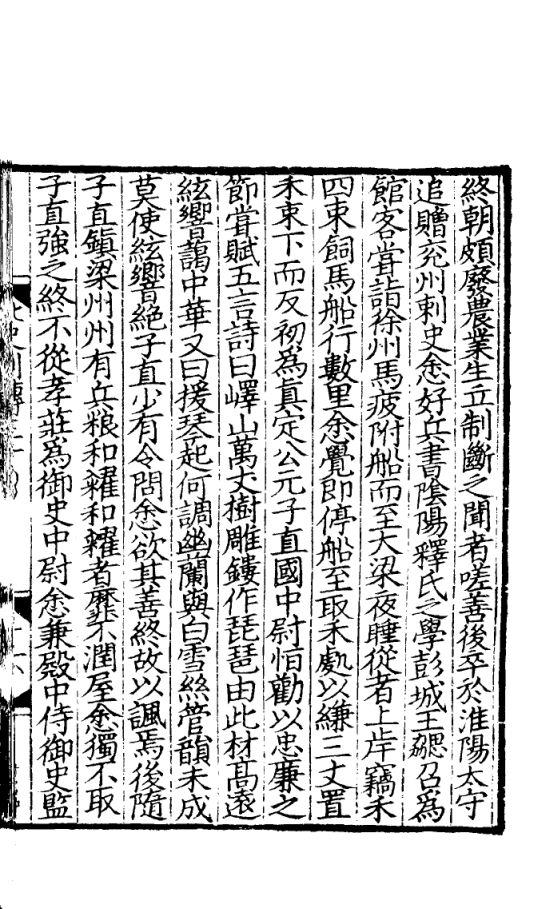 終朝頗廢農業生立制斷之聞者嗟善後卒於淮陽太守
追贈兖州刺史悆好兵書陰陽釋氏之學彭城王勰召爲
館客嘗詣徐州馬疲附船而至大梁夜睡從者上岸竊禾
四束飼馬船行數里悆覺即停船至取禾處以縑三丈置
禾束下而反初爲真定公元子直國中尉恒勸以忠廉之
節嘗賦五言詩曰嶧山萬丈樹雕鏤作琵琶由此材高遠
絃響藹中華又曰援琴起何調幽蘭與白雪絲管韻未成
莫使絃響絕子直少有令問悆欲其善終故以諷焉後隨
子直鎮梁州州有兵粮和糴和糴者靡不潤屋悆獨不取
子直強之終不從孝莊爲御史中尉悆兼殿中侍御史監